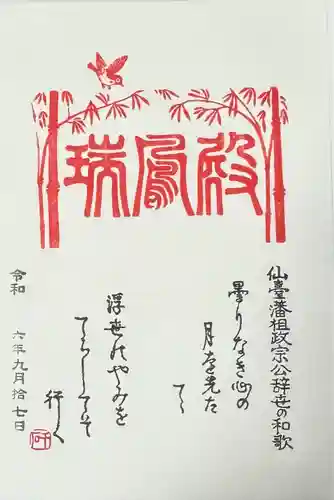 瑞鳳殿
仙臺藩祖政宗公辞世の和歌
曇りなき心の
月を先だ
てゝ
浮世のやみを
てらしてぞ
行く
令和 六年九月拾七日